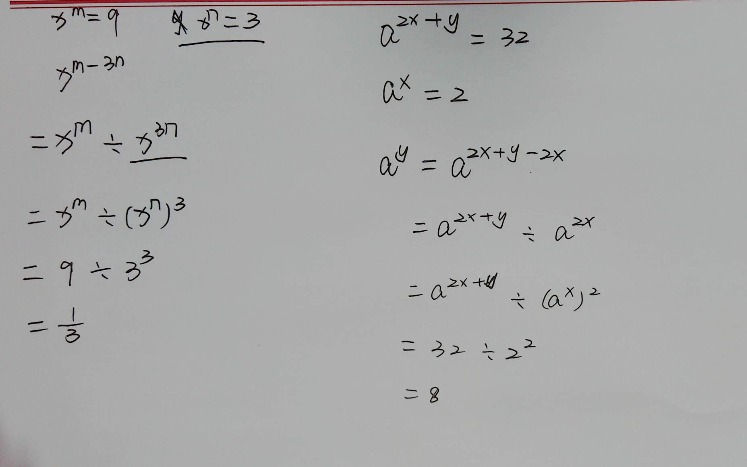 xᵐ = 9 xⁿ = 3
xᵐ⁻³ⁿ
= xᵐ ÷ x³ⁿ
= xᵐ ÷ (xⁿ)³
= 9 ÷ 3³
= 1/3
a²ˣ⁺ʸ = 32
aˣ = 2
aʸ = a²ˣ⁺ʸ⁻²ˣ
= a²ˣ⁺ʸ ÷ a²ˣ
= a²ˣ⁺ʸ ÷ (aˣ)²
= 32 ÷ 2²
= 8